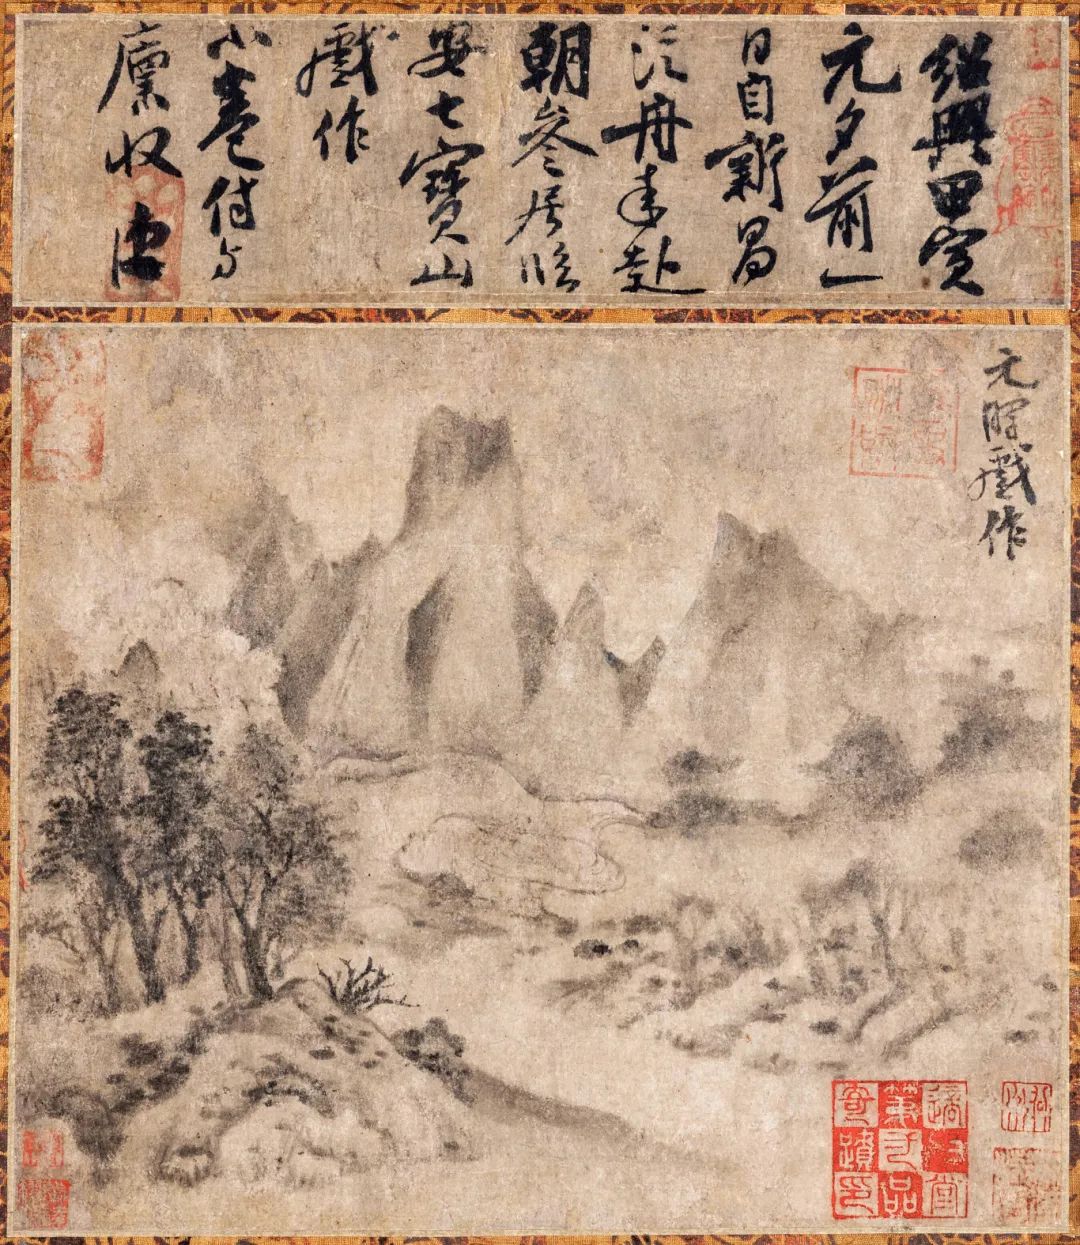 紹興甲寅
元夕前一
日自新昌
泛舟来赴
朝參居临
安七寶山
戲作
小卷付与
廩收
元暉戲作